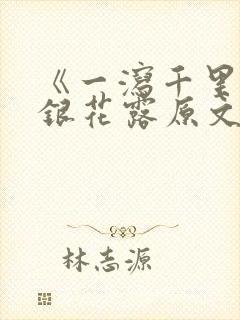 《一泻千里
银花露原文
林志源